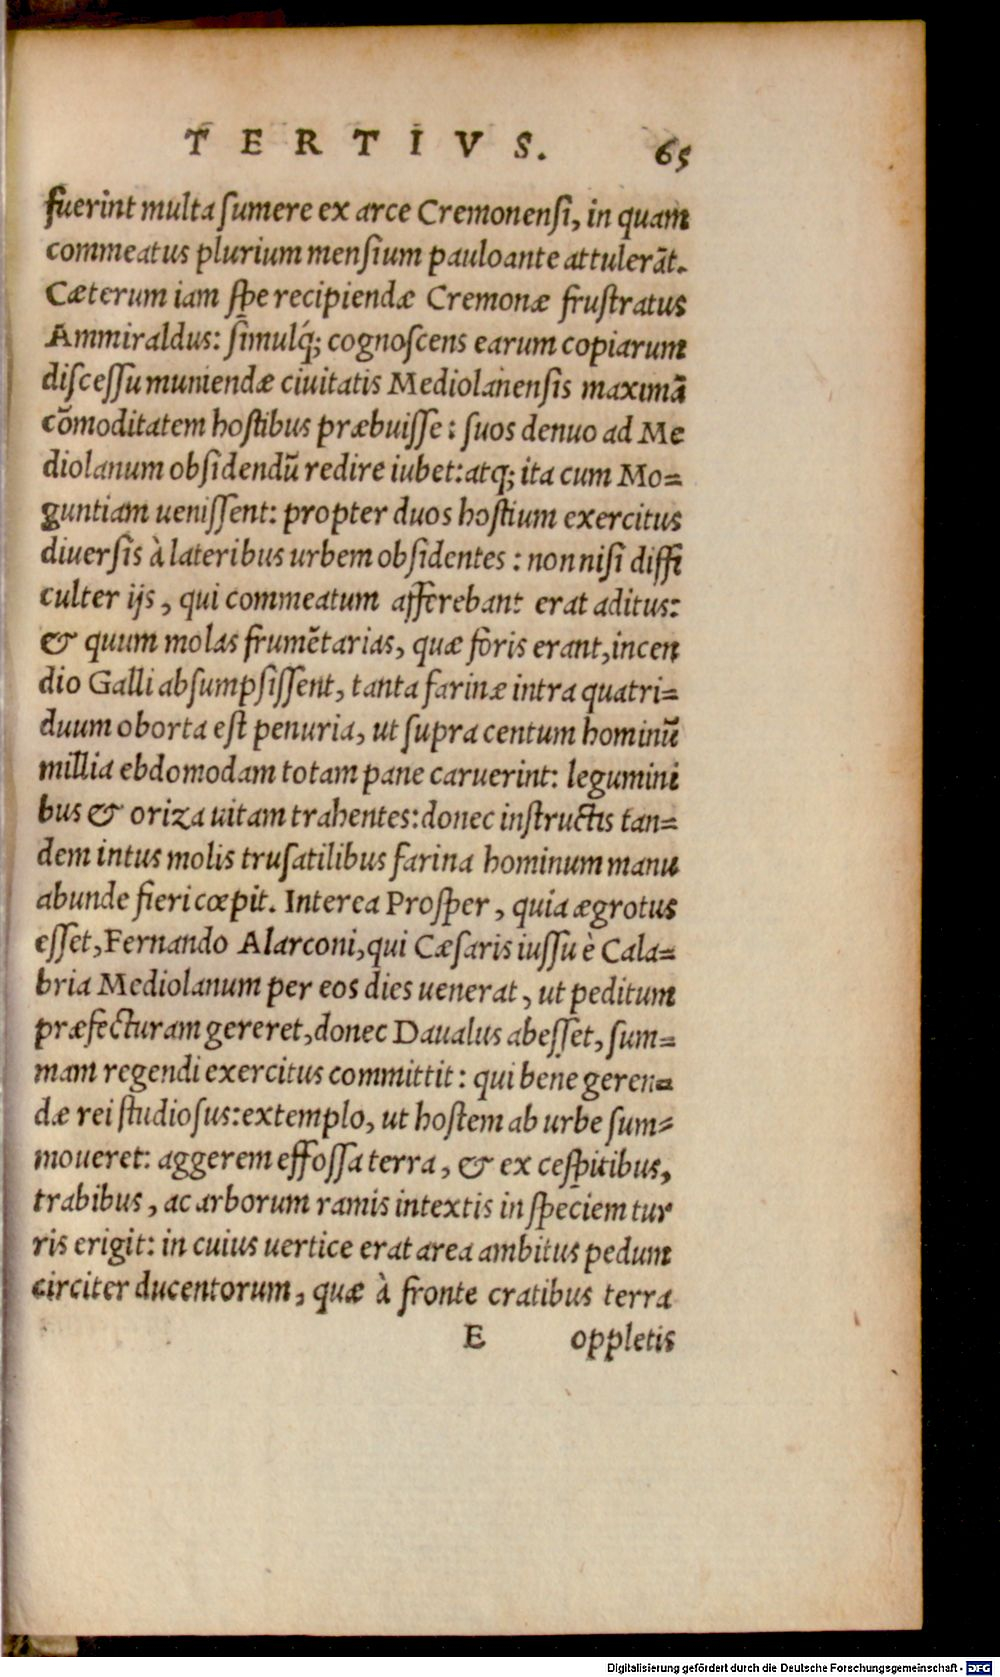 TERTIVS. 65
fuerint multa ſumere ex arce Cremonenſi, in quam
commeatus plurium menſium pauloante attulerāt.
Cæterum iam ſpe recipiendæ Cremonæ fruſtratus
Ammiraldus: ſimulq́; cognoſcens earum copiarum
diſceſſu muniendæ ciuitatis Mediolanenſis maximā
cōmoditatem hoſtibus præbuiſſe: ſuos denuo ad Me
diolanum obſidendū redire iubet: atq; ita cum Mo=
guntiam ueniſſent: propter duos hoſtium exercitus
diuerſis à lateribus urbem obſidentes: non niſi diffi
culter ijs, qui commeatum afferebant erat aditus:
& quum molas frumētarias, quæ foris erant, incen
dio Galli abſumpſiſſent, tanta farinæ intra quatri=
duum oborta eſt penuria, ut ſupra centum hominū
millia ebdomodam totam pane caruerint: legumini
bus & oriza uitam trahentes: donec inſtructis tan=
dem intus molis truſatilibus farina hominum manu
abunde fieri cœpit. Interea Proſper, quia ægrotus
eſſet, Fernando Alarconi, qui Cæſaris iuſſu è Cala=
bria Mediolanum per eos dies uenerat, ut peditum
præfecturam gereret, donec Daualus abeſſet, ſum=
mam regendi exercitus committit: qui bene geren=
dæ rei ſtudioſus: extemplo, ut hoſtem ab urbe ſum=
moueret: aggerem effoſſa terra, & ex ceſpitibus,
trabibus, ac arborum ramis intextis in ſpeciem tur
ris erigit: in cuius uertice erat area ambitus pedum
circiter ducentorum, quæ à fronte cratibus terra
E oppletis
Digitalisierung gefördert durch die Deutsche Forschungsgemeinschaft - DFG